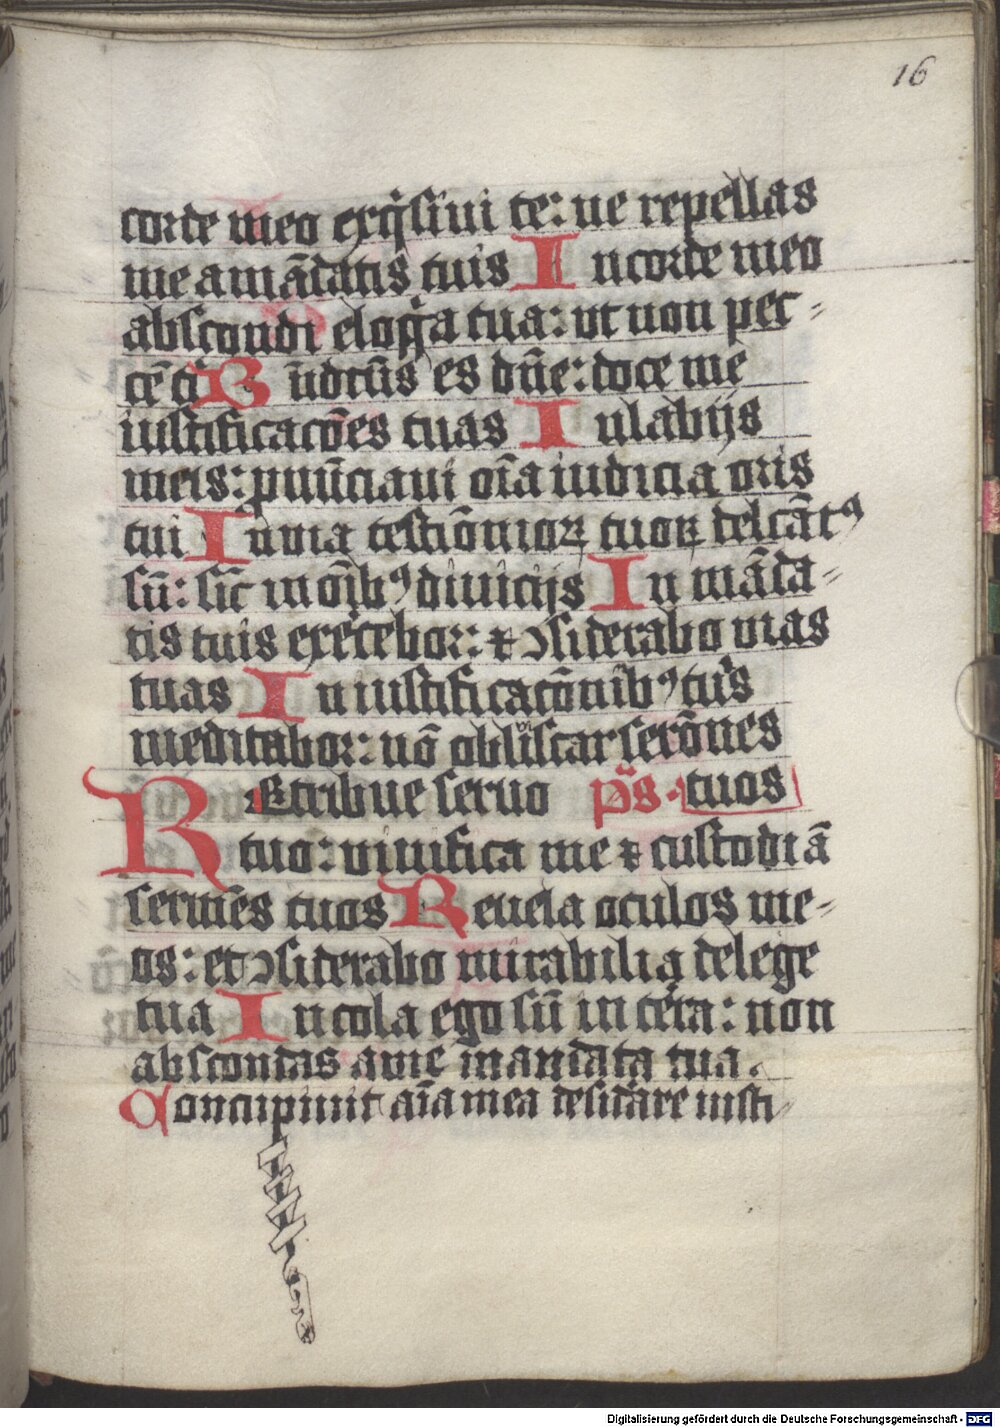 16
corde meo exq̇siui te: ne repellas
me a mādatis tuis In corde meo
abscondi eloq̇a tua: ut non pec-
cē tⁱ Bn̄dictus es dn̄e: doce me
iustificacōes tuas In labijs
meis: pnūciaui oīa iudicia oris
tui In uia testiōnioꝝ tuoꝝ delcātꝰ
sū: sic̄ in oībꝰ diuicijs In māda-
tis tuis exercebor: ⁊ ↄsiderabo uias
tuas In iustificacōnibꝰ tuis
meditabor: nō obliuiscar sermōnes
REtribue seruo ps̄· tuos
tuo: viuifica me ⁊ custodiā
sermēs tuos Reuela oculos me-
os: et ↄsiderabo mirabilia de lege
tua Incola ego sū in terra: non
abscondas a me mandata tua.
Concupiuit aīa mea desidare iusti-
Digitalisierung gefördert durch die Deutsche Forschungsgemeinschaft - DFG